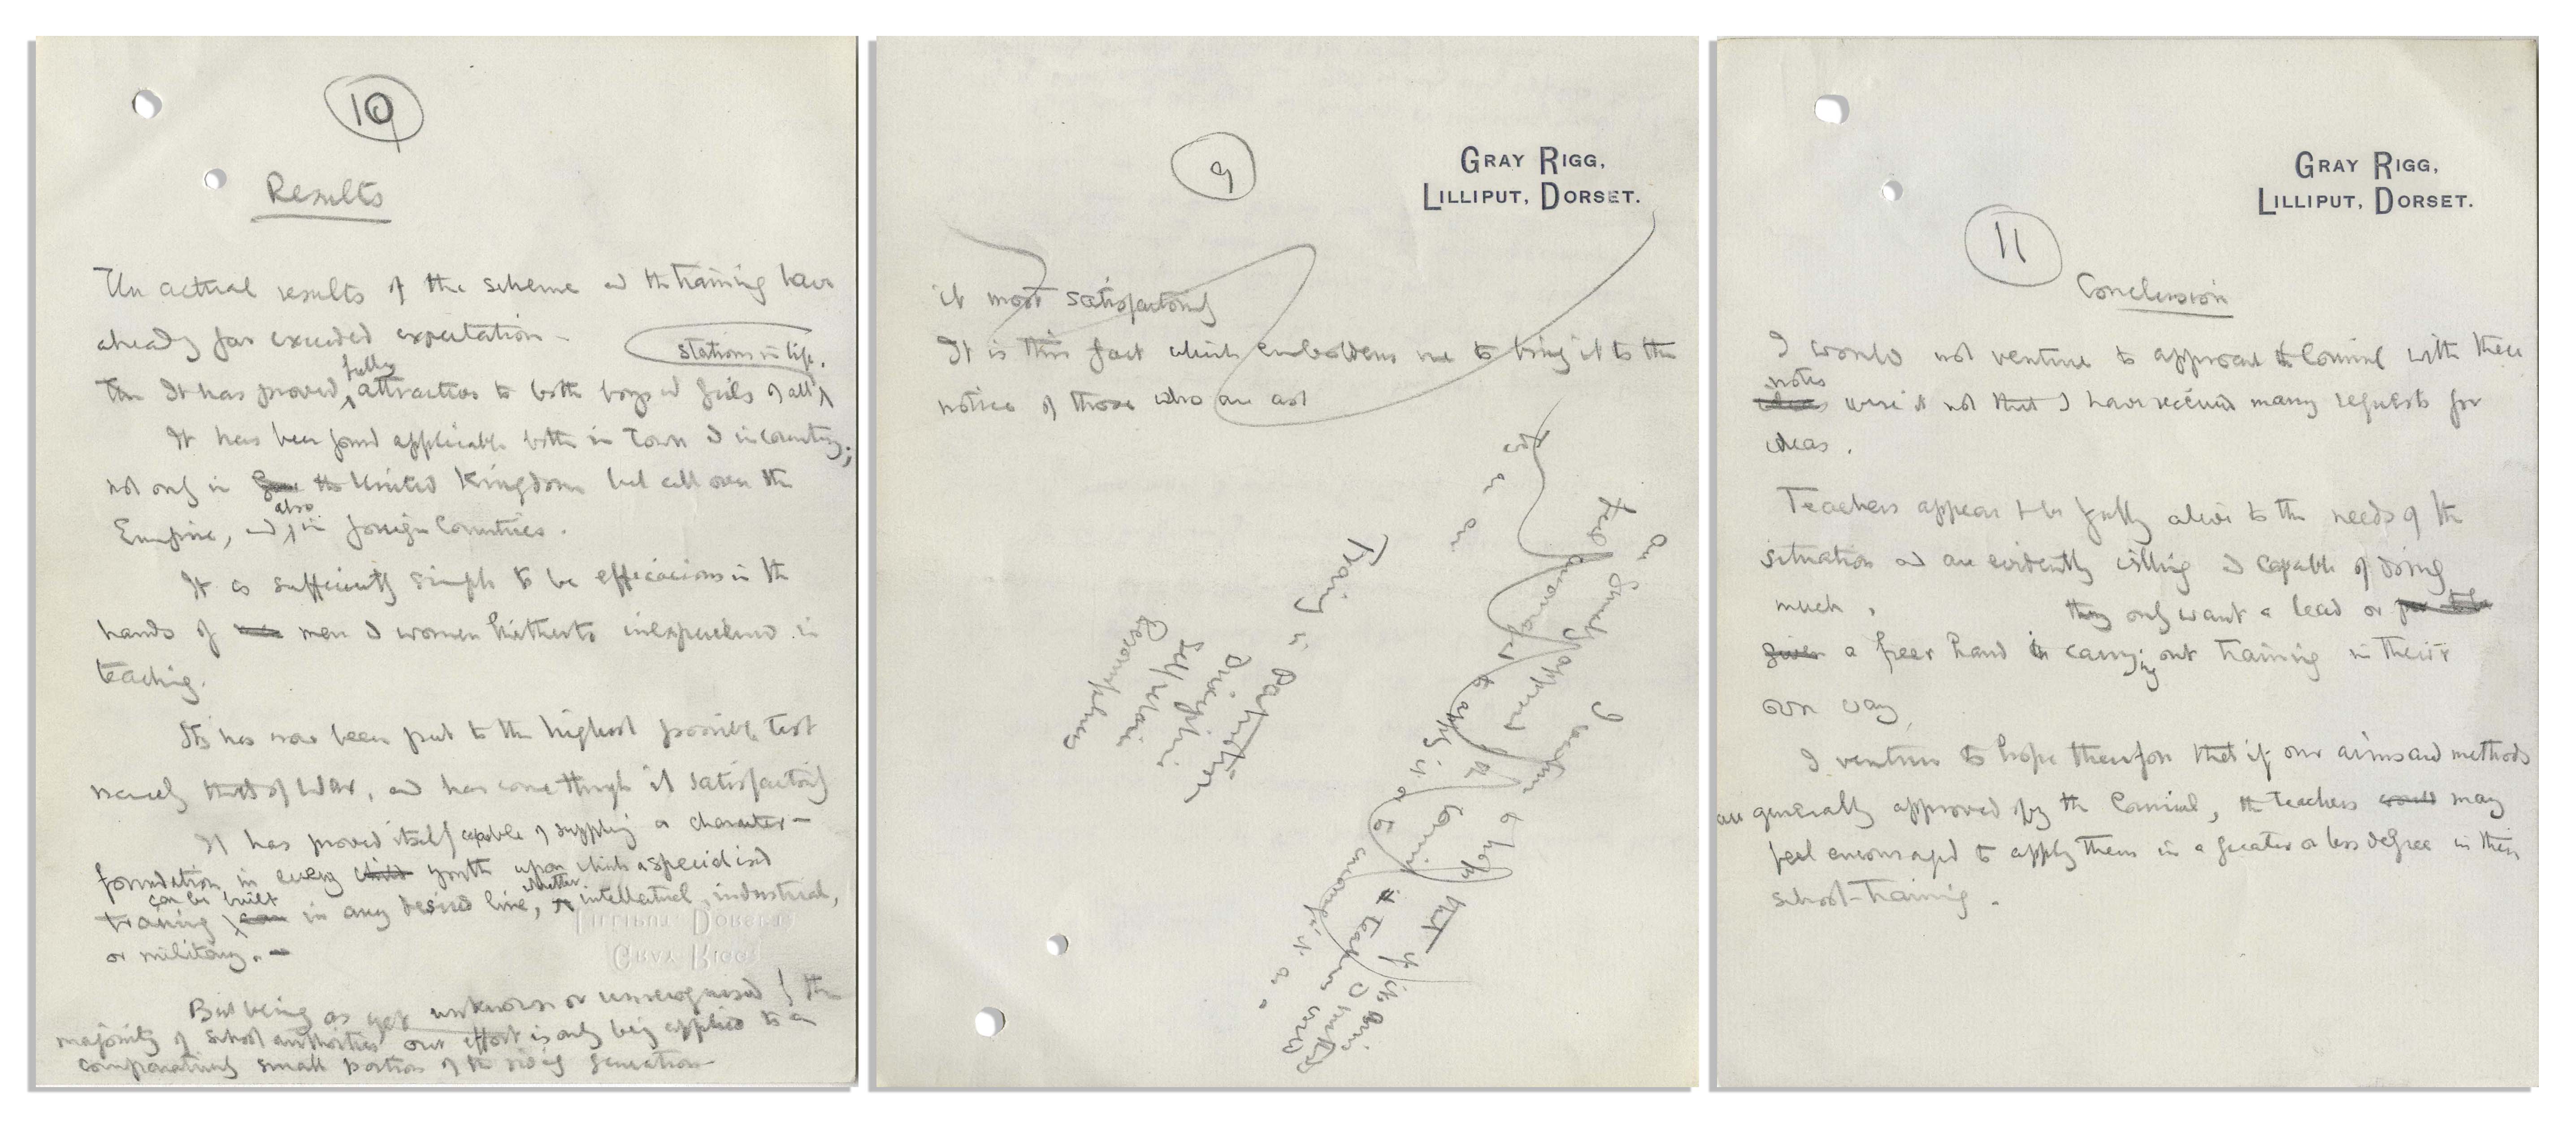 10
Results
The actual results of the scheme and the training have
already far exceeded expectation –
stations in life.
The It has proved fully attractive to both boys and girls of all
It has been found applicable both in Town & in country;
not only in the United Kingdom but all over the
Empire, and also in foreign Countries.
It is sufficiently simple to be efficacious in the
hands of men & women hitherto inexperienced in
teaching.
It has now been put to the highest possible test
namely that of War, and has come through it satisfactorily
It has proved itself capable of supplying a character-
foundation in every child youth upon which a specialised
training can be built in any desired line, whether intellectual, industrial,
or military. –
But being as yet unknown or unrecognised by the
majority of school authorities our effort is only being applied to a
comparatively small portion of the rising generation
LILLIPUT, DORSET.
GRAY RIGG,
9
GRAY RIGG,
LILLIPUT, DORSET.
it most satisfactorily
It is this fact which emboldens me to bring it to the
notice of those who are not
Training in Patriotism
Discipline
Self reliance
Resourcefulness
I venture to hope that if its aims
are generally approved
feel encouraged to apply it
11
GRAY RIGG,
LILLIPUT, DORSET.
Conclusion
I would not venture to approach the Council with these
notes
ideas were it not that I have received many requests for
ideas.
Teachers appear to be fully alive to the needs of the
situation and are evidently willing & capable of doing
much, they only want a lead or
given a freer hand in carrying out training in their
own way.
I venture to hope therefore that if our aims and methods
are generally approved by the Council, the teachers would may
feel encouraged to apply them in a greater or less degree in their
school-training.